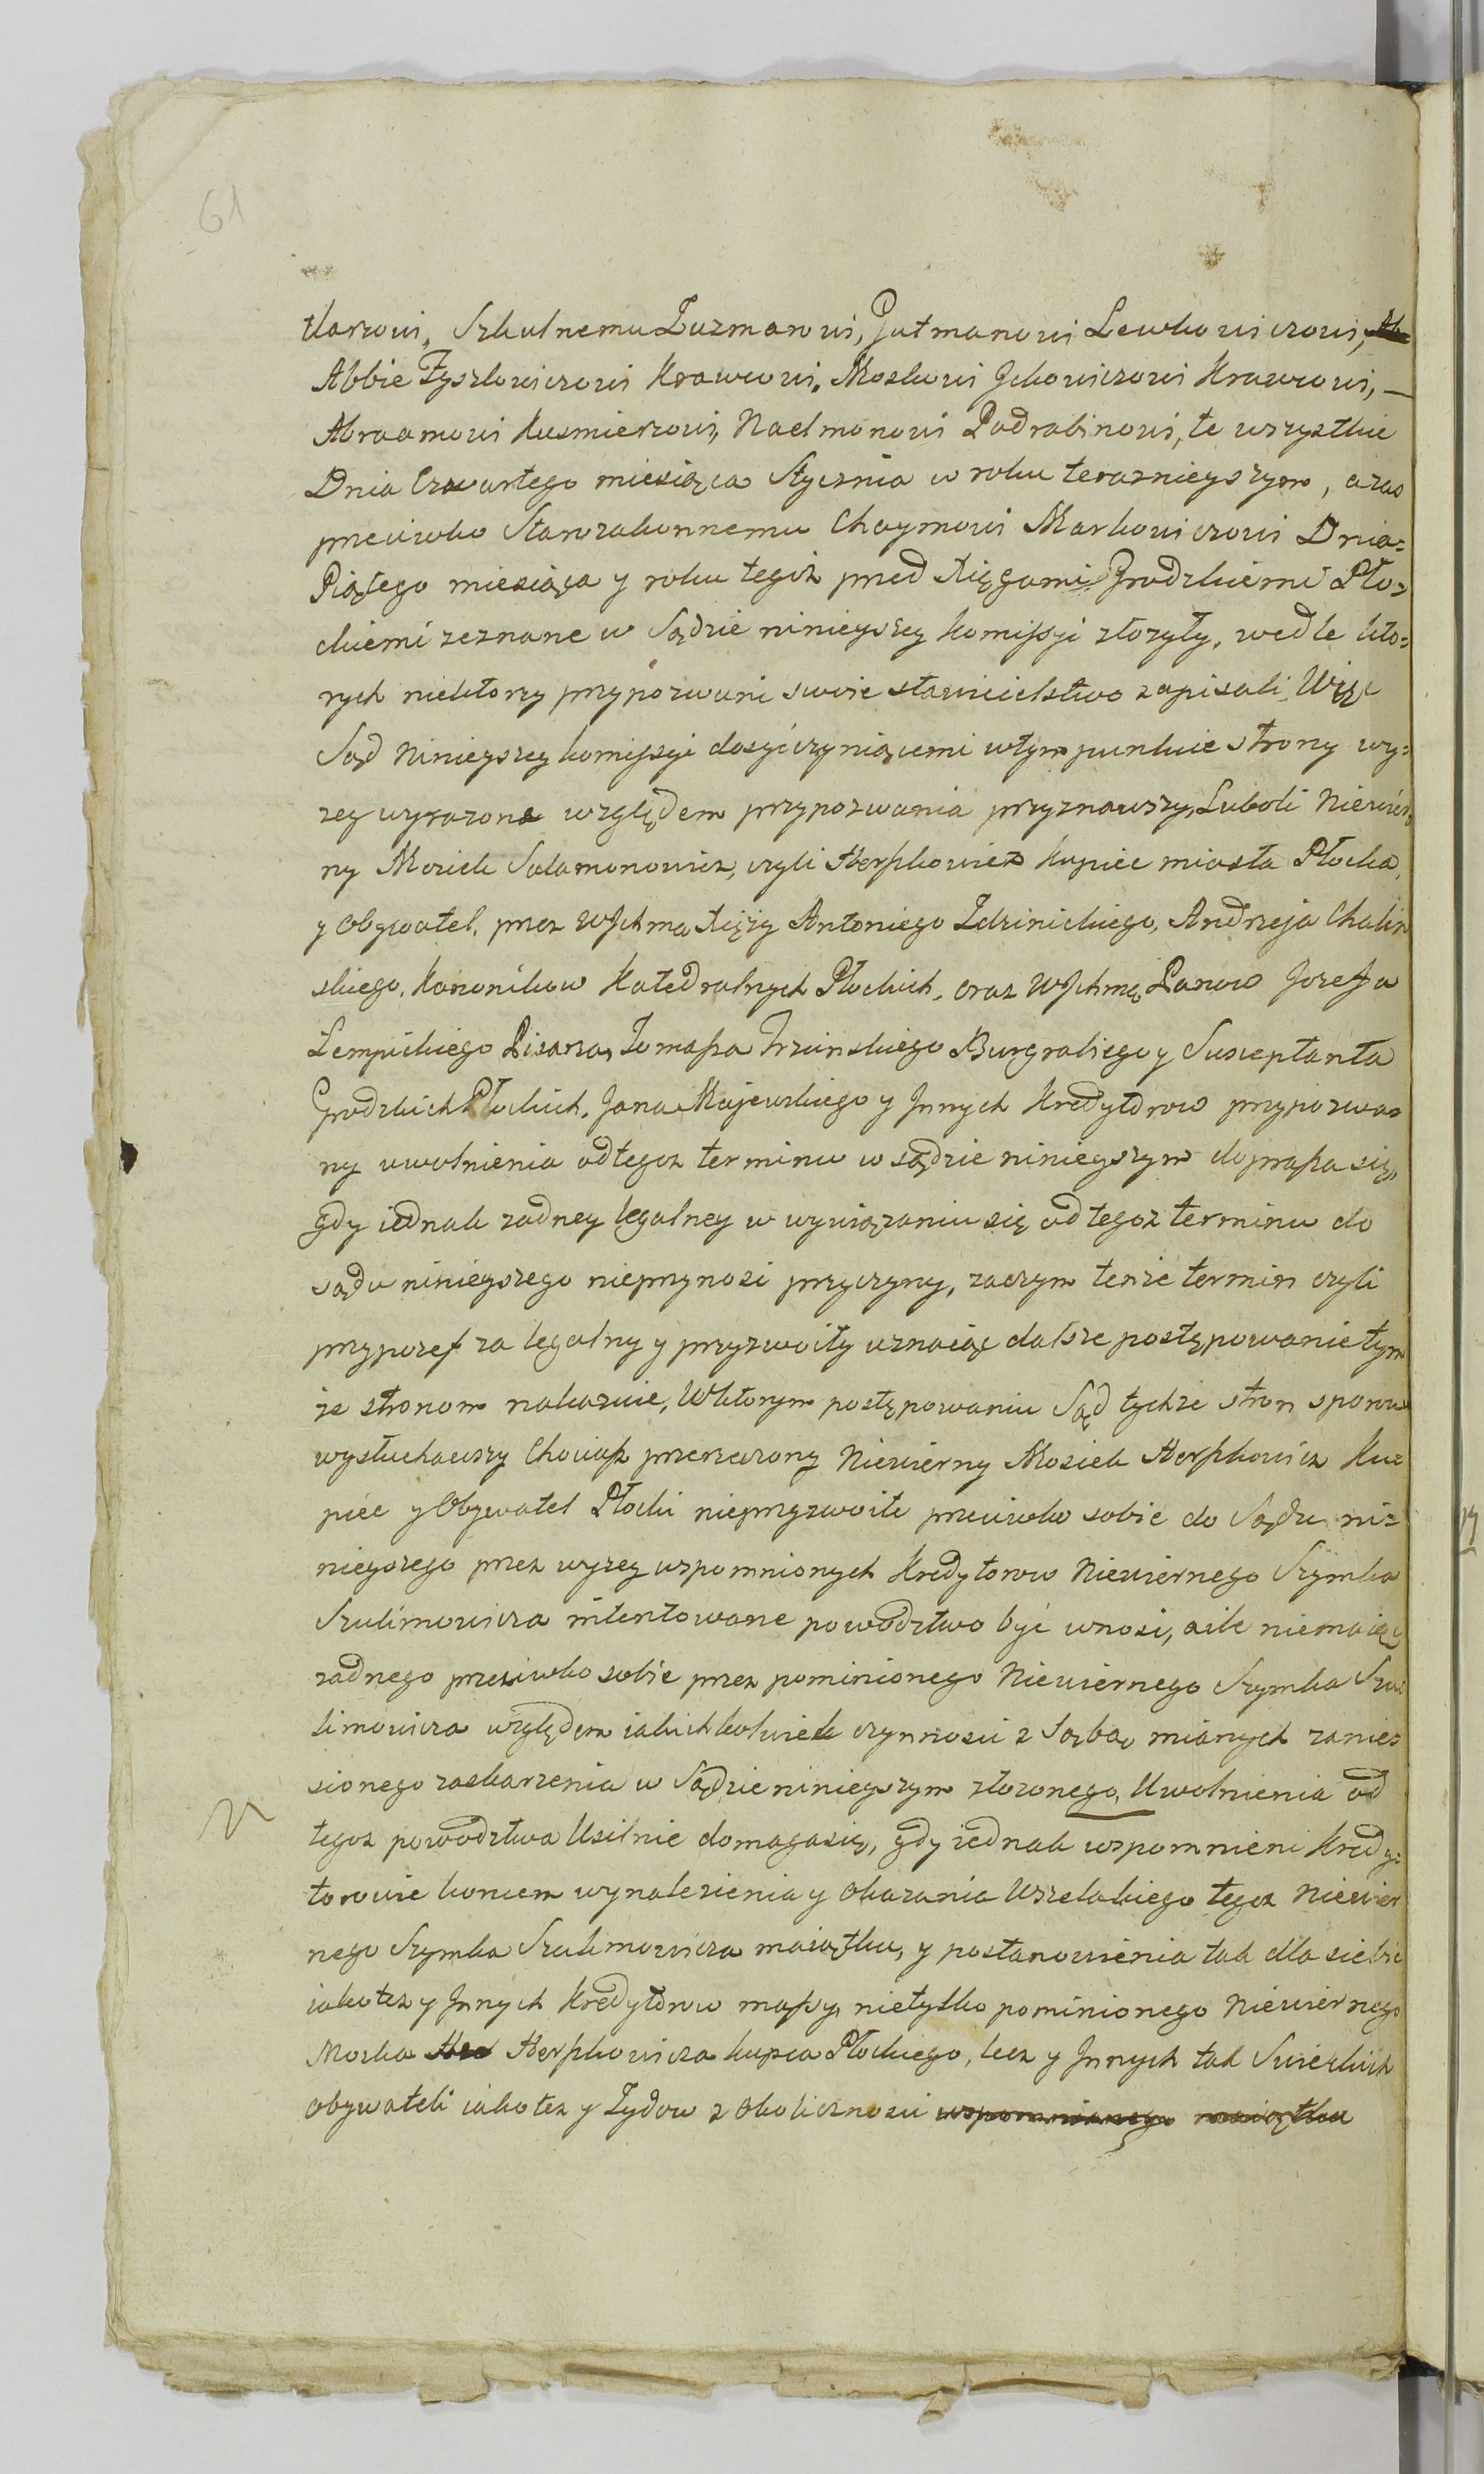 61
tlarzowi, Szkulnemu Zuzmanowi, Gutmanowi Lewkowiczowi, Ab
Abbie Zyszkowiczowi Krawcowi, Moszkowi Jckowiczowi Krawcowi, —
Abraamowi Kusmierzowi, Naclmonowi Podrabinowi, te wszystkie
Dnia Czwartego miesiąca Stycznia w roku terazniejszym, a zas
przeciwko Starozakonnemu Chaymowi Markowiczowi Dnia=
Piątego miesiąca y roku tegoż przed Xięgami Grodzkiemi Pło=
ckiemi zeznane w Sądzie ninieyszey komissyi złożyły, wedle kto=
rych niektorzy przypozwani swoie stawicielstwo zapisali, Więc
Sąd Ninieyszey komissyi dosyć czyniącemi w tym punkcie strony wy=
zey wyrazone względem przypozwania przyznawszy, Luboli Niewier
ny Mosiek Salamonowicz, czyli Herszkowicz Kupiec miasta Płocka,
y Obywatel, przez WJchmć Xięży Antoniego Zdzinickiego, Andrzeja Chalin
skiego, Kanonikow Katedralnych Płockich, oraz WJchmć Panow Jozefa
Lempickiego Pisarza, Tomasza Trzcinskiego Burgrabiego y Susceptanta
Grodzkich Płockich, Jana Majewskiego y Jnnych Kredytorow przypozwa=
ny uwolnienia od tegoz terminu w sądzie ninieyszym doprasza się,
gdy iednak zadney legalney w wywiązaniu się od tegoz terminu do
sądu ninieyszego nieprzynosi przyczyny, zaczym tenze termin czyli
przypozef za legalny y przyzwoity uznaiąc dalsze postępowanie tym
ze stronom nakazuie, W ktorym postępowaniu Sąd tychze stron sporow
wysłuchawszy Chociasz przerzeczony Niewierny Mosiek Herszkowicz Ku=
piec y Obywatel Płocki nieprzyzwoite przeciwko sobie do Sądu ni=
nieyszego przez wyzey wspomnionych Kredytorow Niewiernego Szymka
Szulimowicza intentowane powodztwo być wnosi, a ile niemaiąc
zadnego przeciwko sobie przez pominionego Niewiernego Szymka Szu=
limowicza względem iakichkolwiek czynnosci z Sobą mianych zanie=
sionego zaskarzenia w Sądzie ninieyszym złozonego, Uwolnienia od
tegoz powodztwa Usilnie domaga się, gdy iednak wspomnieni Kredy=
torowie koncem wynalezienia y Okazania Wszelakiego tegoz Niewier
nego Szymka Szulimowicza maiątku, y postanowienia tak dla siebie
iako tez y Jnnych Kredytorow massy, nietylko pominionego Niewiernego
Moszka Her Herszkowicza kupca Płockiego, lecz y Jnnych tak Swieckich
obywateli iako tez y Zydow z Okolicznosci wspomnianego maiątku